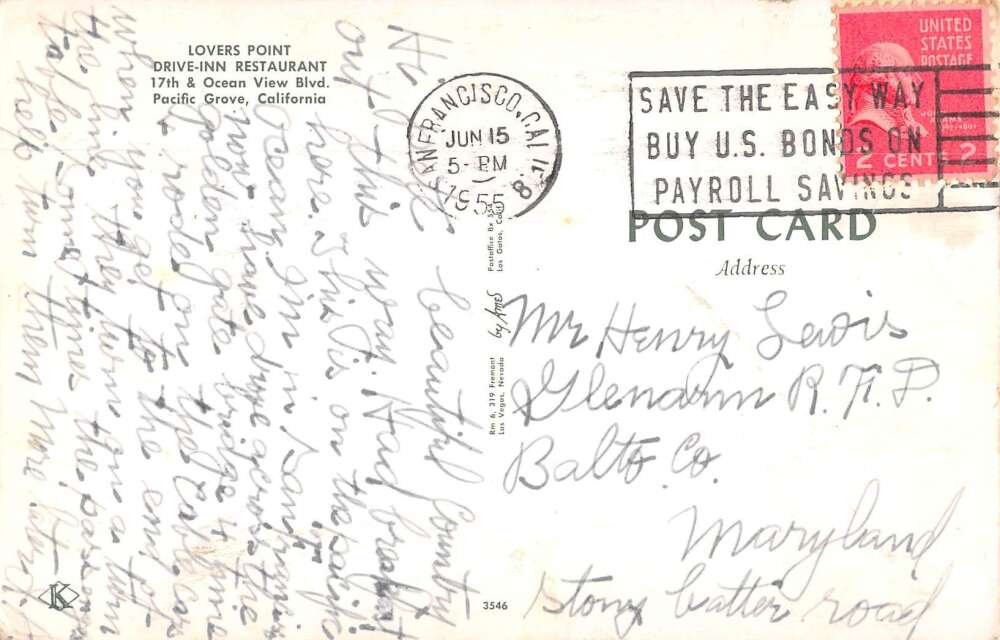 LOVERS POINT
DRIVE-INN RESTAURANT
17th & Ocean View Blvd.
Pacific Grove, California
Hi. Life beautiful Country
out this way. Had breakfast
here. this is on the pacific
Ocean. I'm in San francisco
now have drove across the
golden gate bridge & the
I rooded on the Cable Cars
when you get to the end of
the they turn on a turn
table sometimes the passengers
help turn them More
K
3546
Rm 6, 319 Fremont
Las Vegas, Nevada
by AMES
Postoffice Bx 554
Los Gatos, Calif.
SAN FRANCISCO, CAL
JUN 15
5 - PM
1955
SAVE THE EASY WAY
BUY U.S. BONDS ON
PAYROLL SAVINGS
UNITED
STATES
POSTAGE
2 CENTS 2
POST CARD
Address
Mr Henry Lewis
Glenarm R. F. D.
Balto Co.
Maryland
Stony batter road